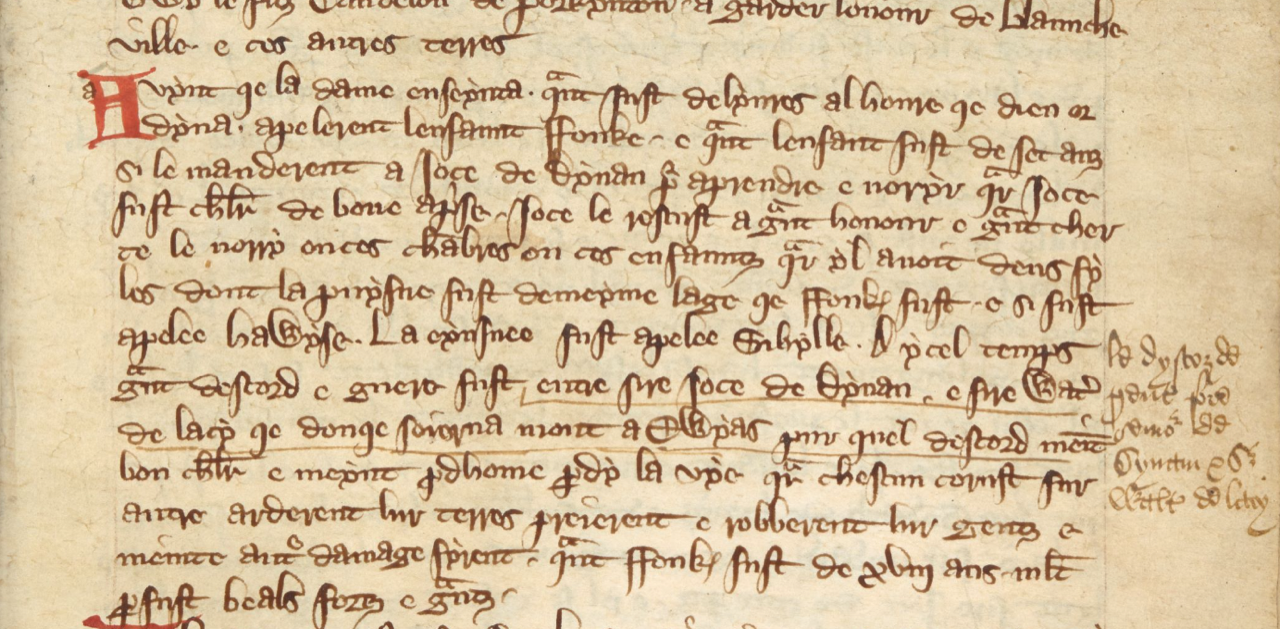 de Blaunche
ville e ces autres terres
Avynt qe la dame enseynta. qant fust delyvres al houre qe dieu or
dyna. apelerent lenfaunt Ffouke. e qant lenfant fust de set anz
si le manderent a Joce de Dynan pur aprendre e noryr qar Joce
fust chlr de bone aprise. Joce le resceust a grant honour e grant cher
te le norry en ces chambres ou ces enfauntz qar yl avoit deus fy
les dont la puysnee fust de meyme lage qe Ffouke fust. e si fust
apelee Hawyse. La eynsnee fust apelee Sibylle. A ycel temps
grant descord e guere fust entre sire Joce de Dynan. e sire Water
de Lacy qe donqe sojorna mout a Ewyas pur quel descord meint
bon chlr e meynt prodhome perdy la vye qar chescun corust sur
autre arderent lur terres preierent e robberent lur gentz e
meinte autre damage fyrent. qant Ffouke fust de xviii ans. mlt
par fust beals fortz e grantz.